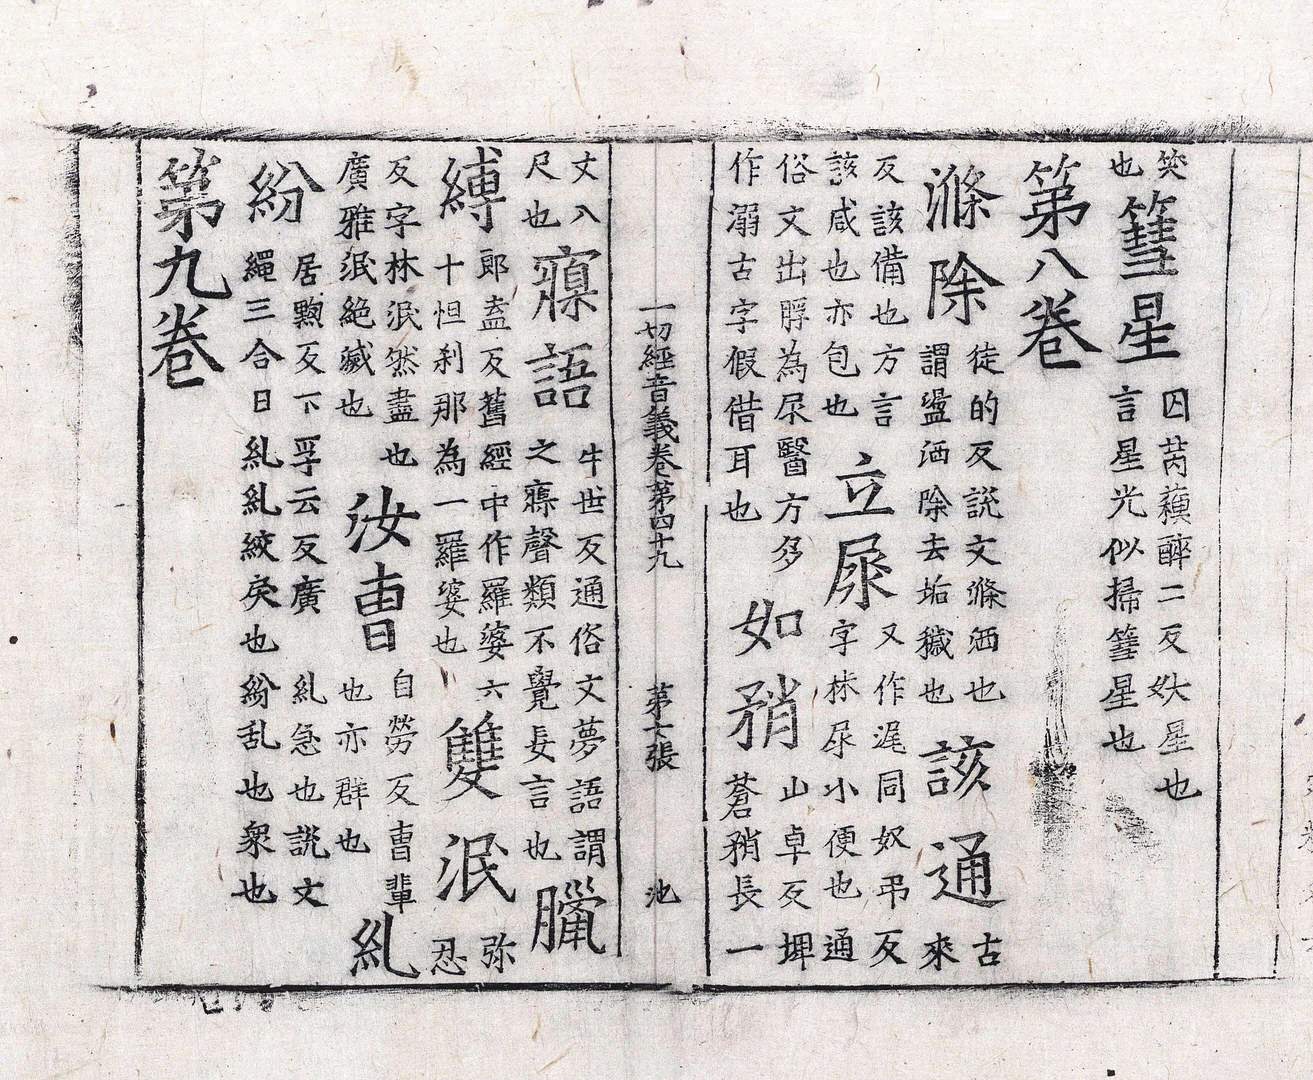 笶也篲星囚芮蘋醉二反妖星也言星光似掃篲星也
第八卷
滌除徒的反說文滌洒也謂盪洒除去垢穢也該通古來
反該備也方言該咸也亦包也立尿又作𡲔同奴弔反字林尿小便也通
俗文出脬為尿醫方多作溺古字假借耳也如矟山卓反埤蒼矟長一
一切經音義卷第四十九 第七張 池
丈八尺也寱語牛世反通俗文夢語謂之寱聲類不覺妄言也臘
縛郎盍反舊經中作羅婆六十怛刹那為一羅婆也雙泯弥忍
反字林泯然盡也廣雅泯絶滅也汝曹自勞反曹輩也亦群也糺
紛居黝反下孚云反廣 糺急也說文繩三合曰糺糺絞戾也紛乱也衆也
第九卷